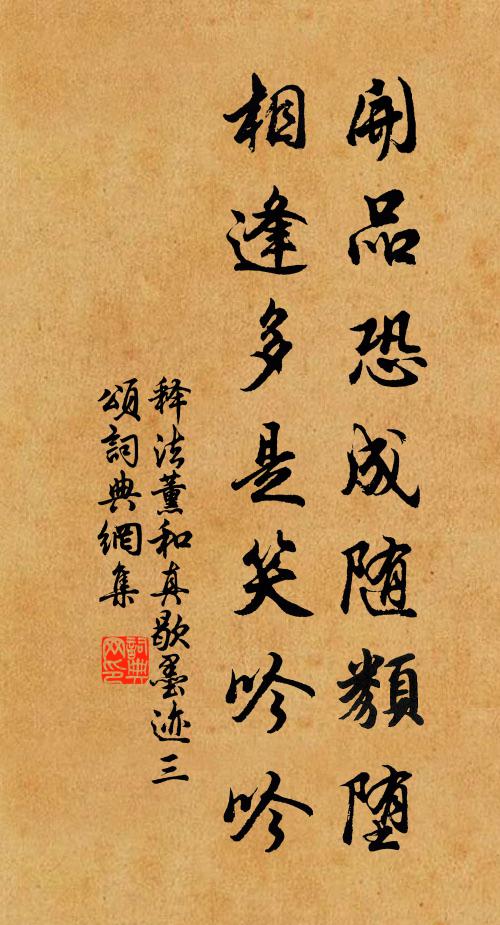 開品恐成随類堕
相逢多是笑吟吟
释法薰和真歇墨迹三
頌詞典網集
詞典
网印